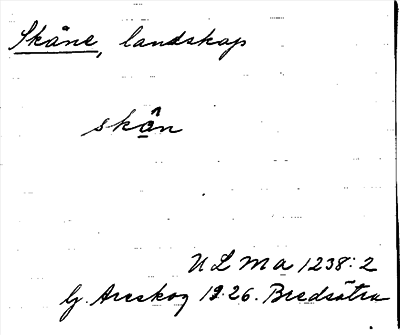 Skåne, landskap
skån
ULMa 1238:2
G. Areskog 1926. Bredsätra